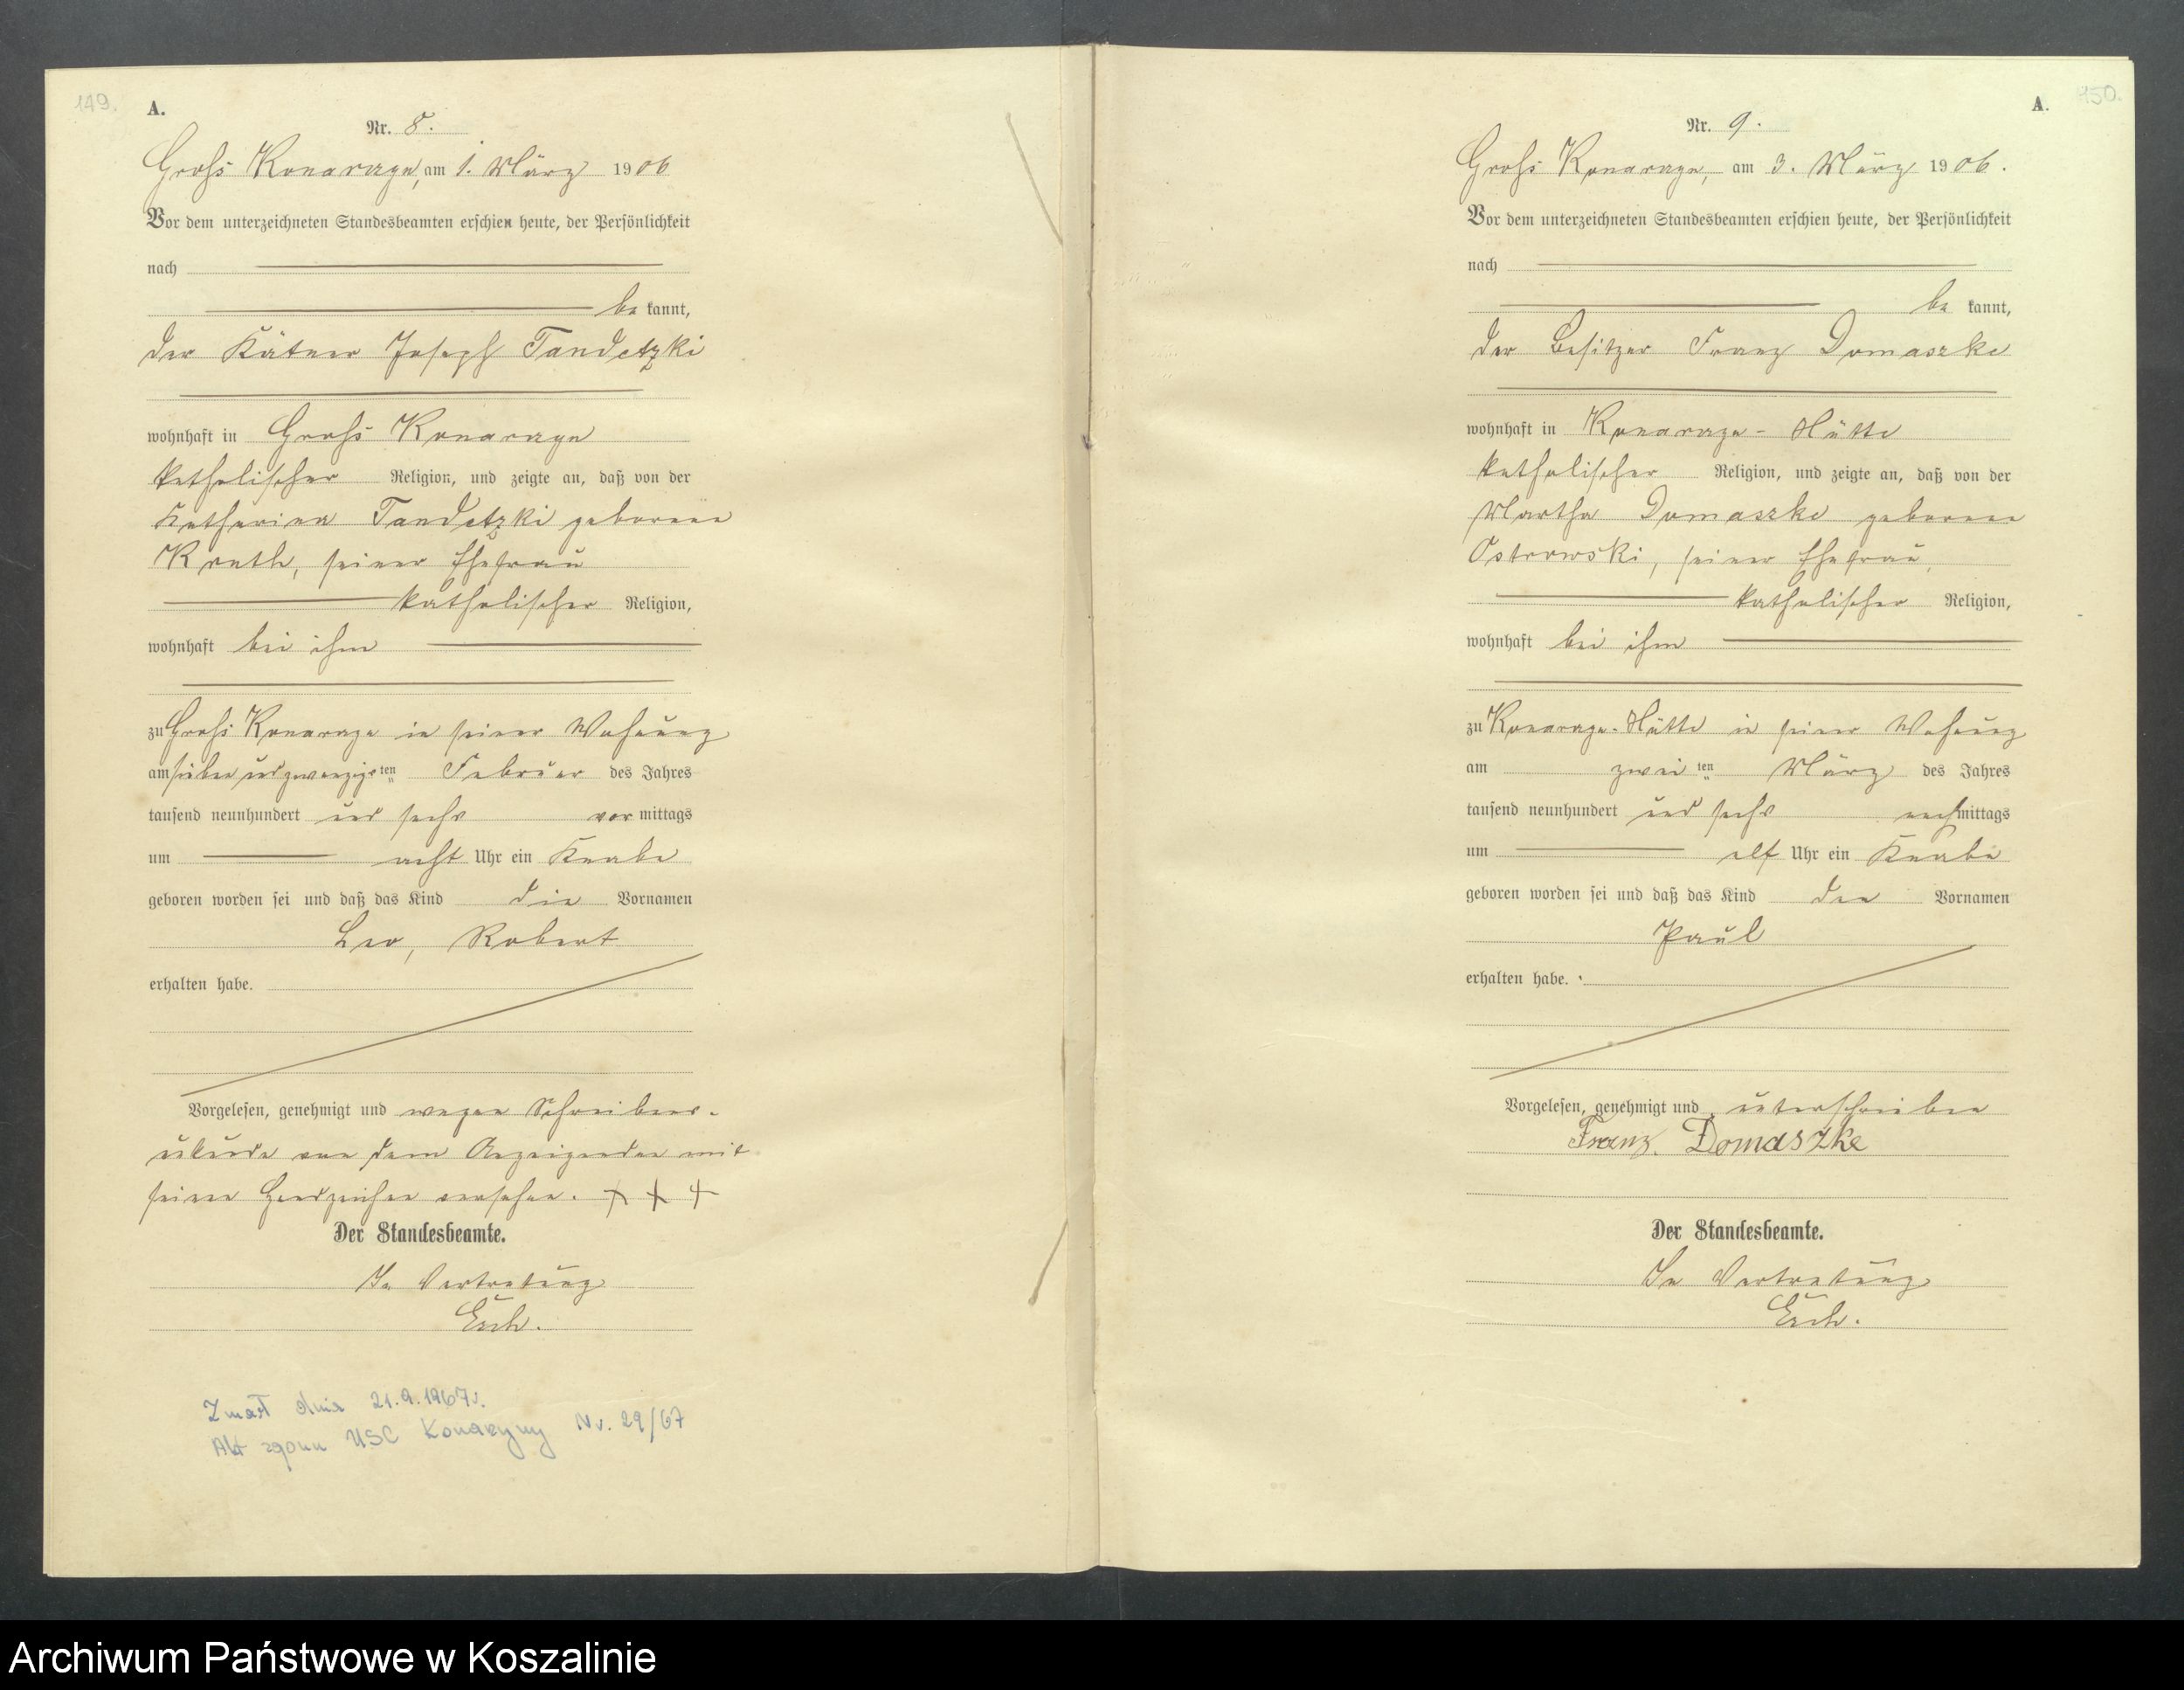 149.
A.
Nr. 8.
Groß Konarczyn, am 1. März 1906
Vor dem unterzeichneten Standesbeamten erschien heute, der Persönlichkeit
nach
be kannt,
der Kätner Joseph Tandetzki
wohnhaft in Groß Konarczyn
katholischer Religion, und zeigte an, daß von der
Katharina Tandetzki geborenen
seiner Ehefrau
katholischer Religion,
wohnhaft bei ihm
zu Groß Konarczyn in seiner Wohnung
am sieben und zwanzigsten Februar des Jahres
tausend neunhundert und sechs vor mittags
um acht Uhr ein Knabe
geboren worden sei und daß das Kind die Vornamen
Leo, Robert
erhalten habe.
Vorgelesen, genehmigt und wegen Schreibens-
unkunde von dem Anzeigenden mit
seinen Handzeichen versehen. + + +
Der Standesbeamte.
In Vertretung
Zmarł dnia 21.9.1967r.
Akt zgonu USC Konarzyny Nr. 29/67
150.
A.
Nr. 9.
Groß Konarczyn, am 3. März 1906.
Vor dem unterzeichneten Standesbeamten erschien heute, der Persönlichkeit
nach
be kannt,
der Besitzer Franz Domaszke
wohnhaft in Konarczyn-Hütte
katholischer Religion, und zeigte an, daß von der
Martha Domaszke geborenen
Ostrowski, seiner Ehefrau,
katholischer Religion,
wohnhaft bei ihm
zu Konarczyn-Hütte in seiner Wohnung
am zwei ten März des Jahres
tausend neunhundert und sechs nachmittags
um elf Uhr ein Knabe
geboren worden sei und daß das Kind den Vornamen
Paul
erhalten habe.
Vorgelesen, genehmigt und unterschrieben
Franz. Domaszke
Der Standesbeamte.
In Vertretung
Archiwum Państwowe w Koszalinie